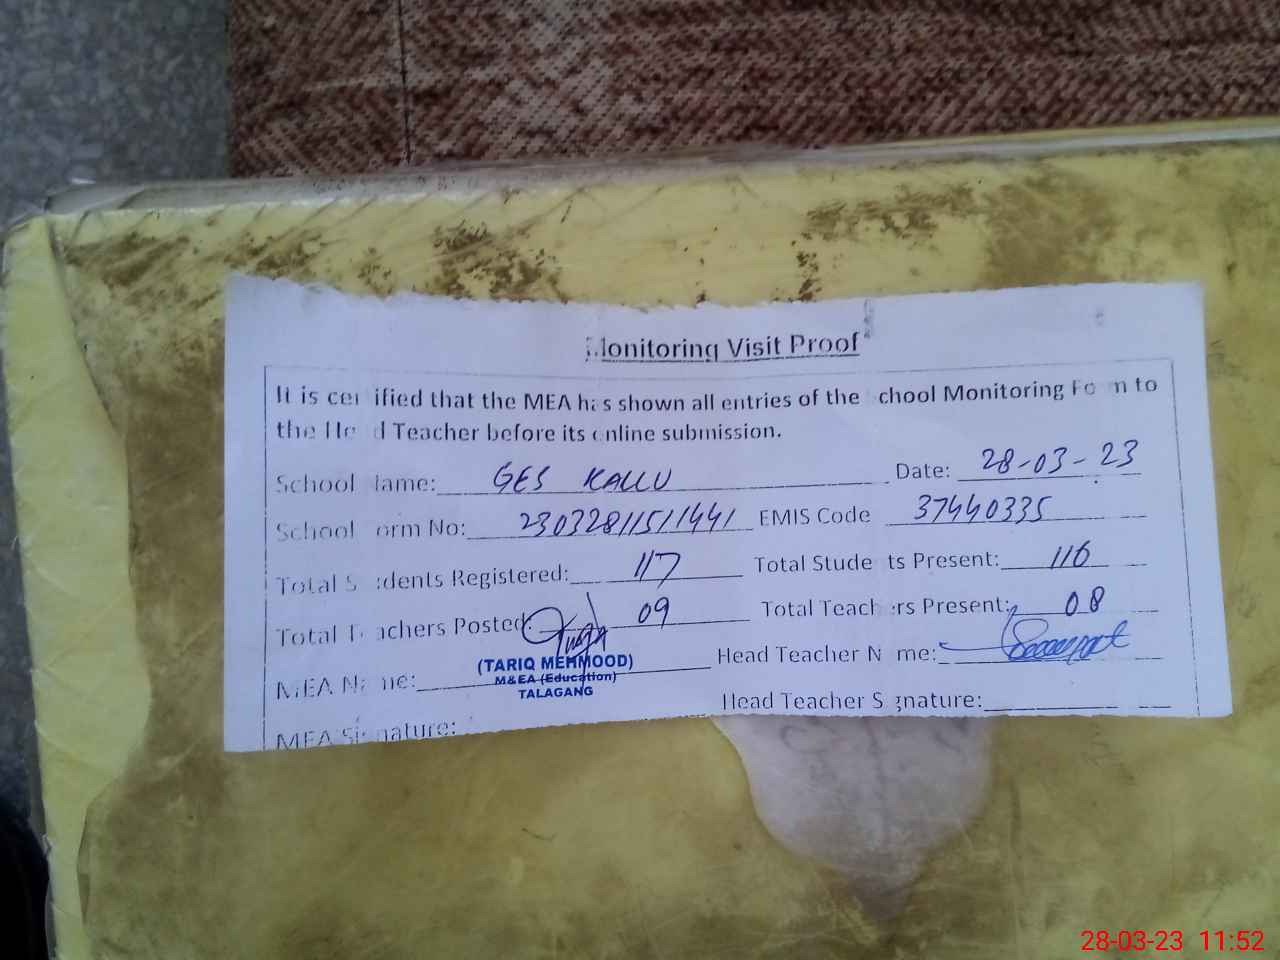 Monitoring Visit Proof
It is certified that the MEA has shown all entries of the School Monitoring Form to
the Head Teacher before its online submission.
School Name: GES KALLU Date: 28-03-23
School Form No: 23032811511441 EMIS Code 37440335
Total Students Registered: 117 Total Students Present: 116
Total Teachers Posted: 09 Total Teachers Present: 08
MEA Name: (TARIQ MEHMOOD) Head Teacher Name:
M&EA (Education)
TALAGANG
MEA Signature: Head Teacher Signature:
28-03-23 11:52